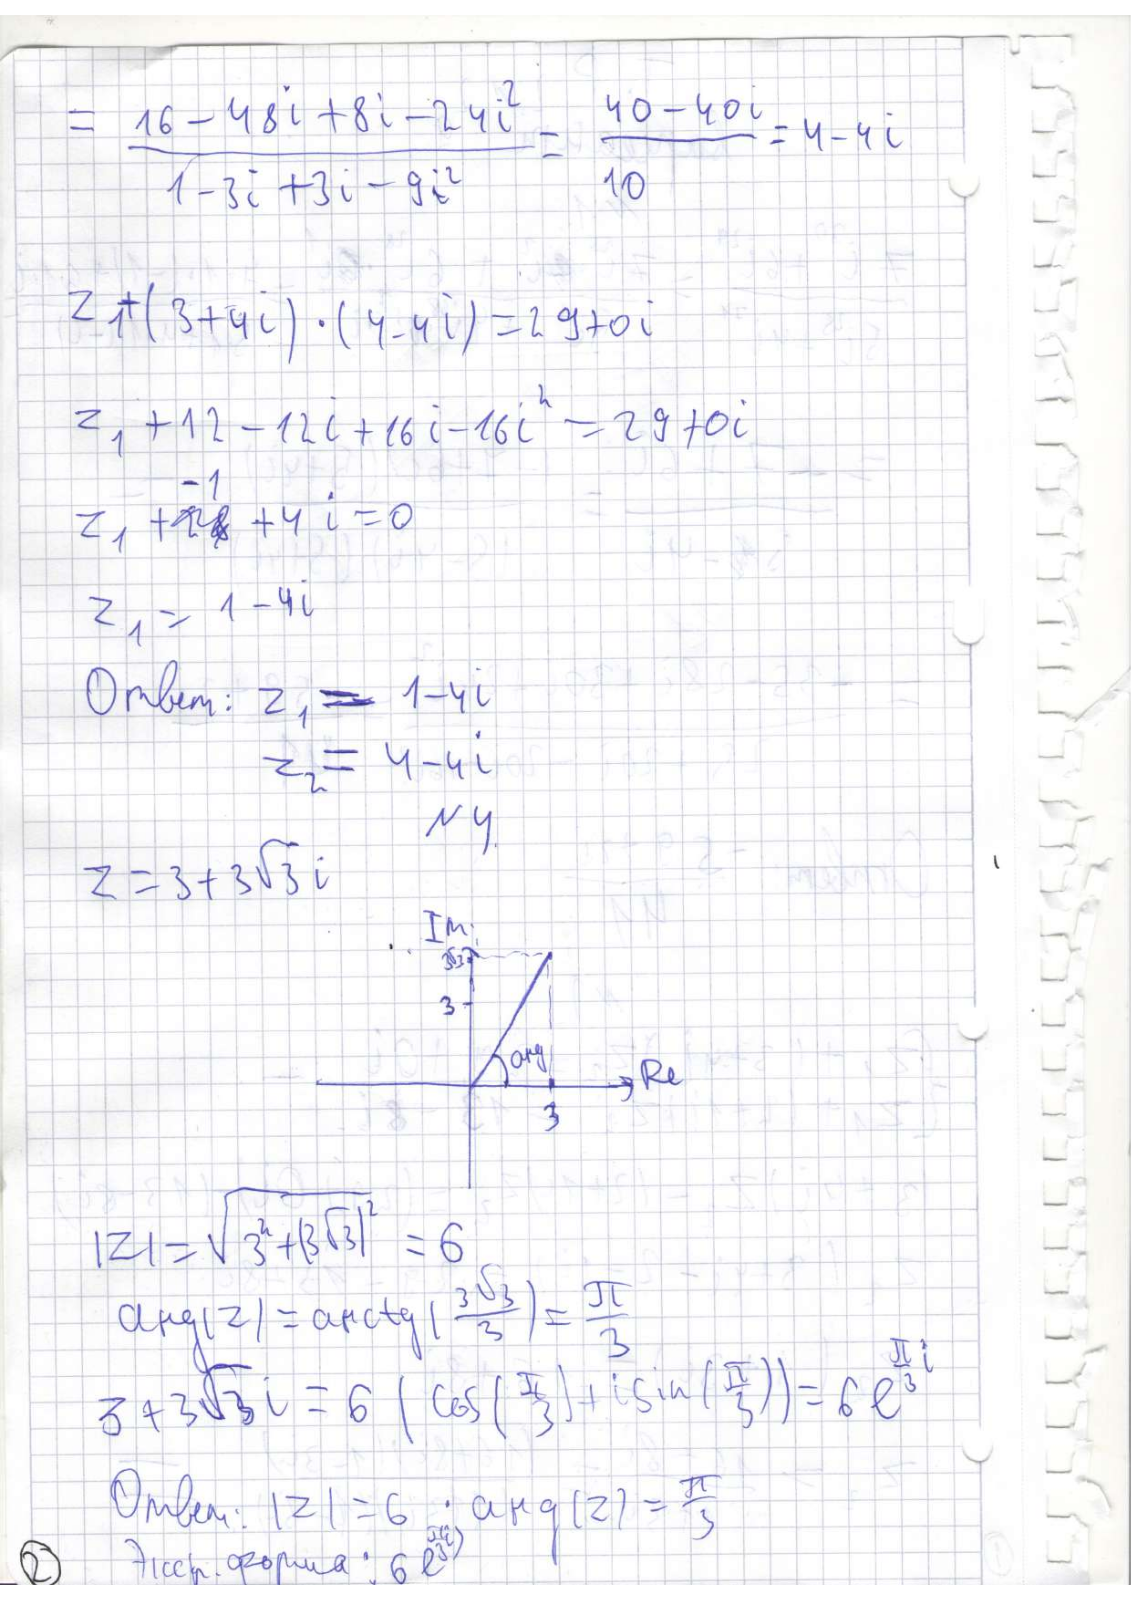 = (16 - 48i + 8i - 24i²) / (1 - 3i + 3i - 9i²) = (40 - 40i) / 10 = 4 - 4i
z₁ + (3 + 4i) · (4 - 4i) = 29 + 0i
z₁ + 12 - 12i + 16i - 16i² = 29 + 0i
-1
z₁ + + 4i = 0
z₁ = 1 - 4i
Ответ: z₁ = 1 - 4i
z₂ = 4 - 4i
N4.
z = 3 + 3√3 i
Im
3√3
3
arg
Re
3
|z| = √(3² + (3√3)²) = 6
arg(z) = arctg(3√3/3) = π/3
3 + 3√3 i = 6 (cos(π/3) + i sin(π/3)) = 6e^(π/3 i)
Ответ: |z| = 6 ; arg(z) = π/3
2 форма: 6e